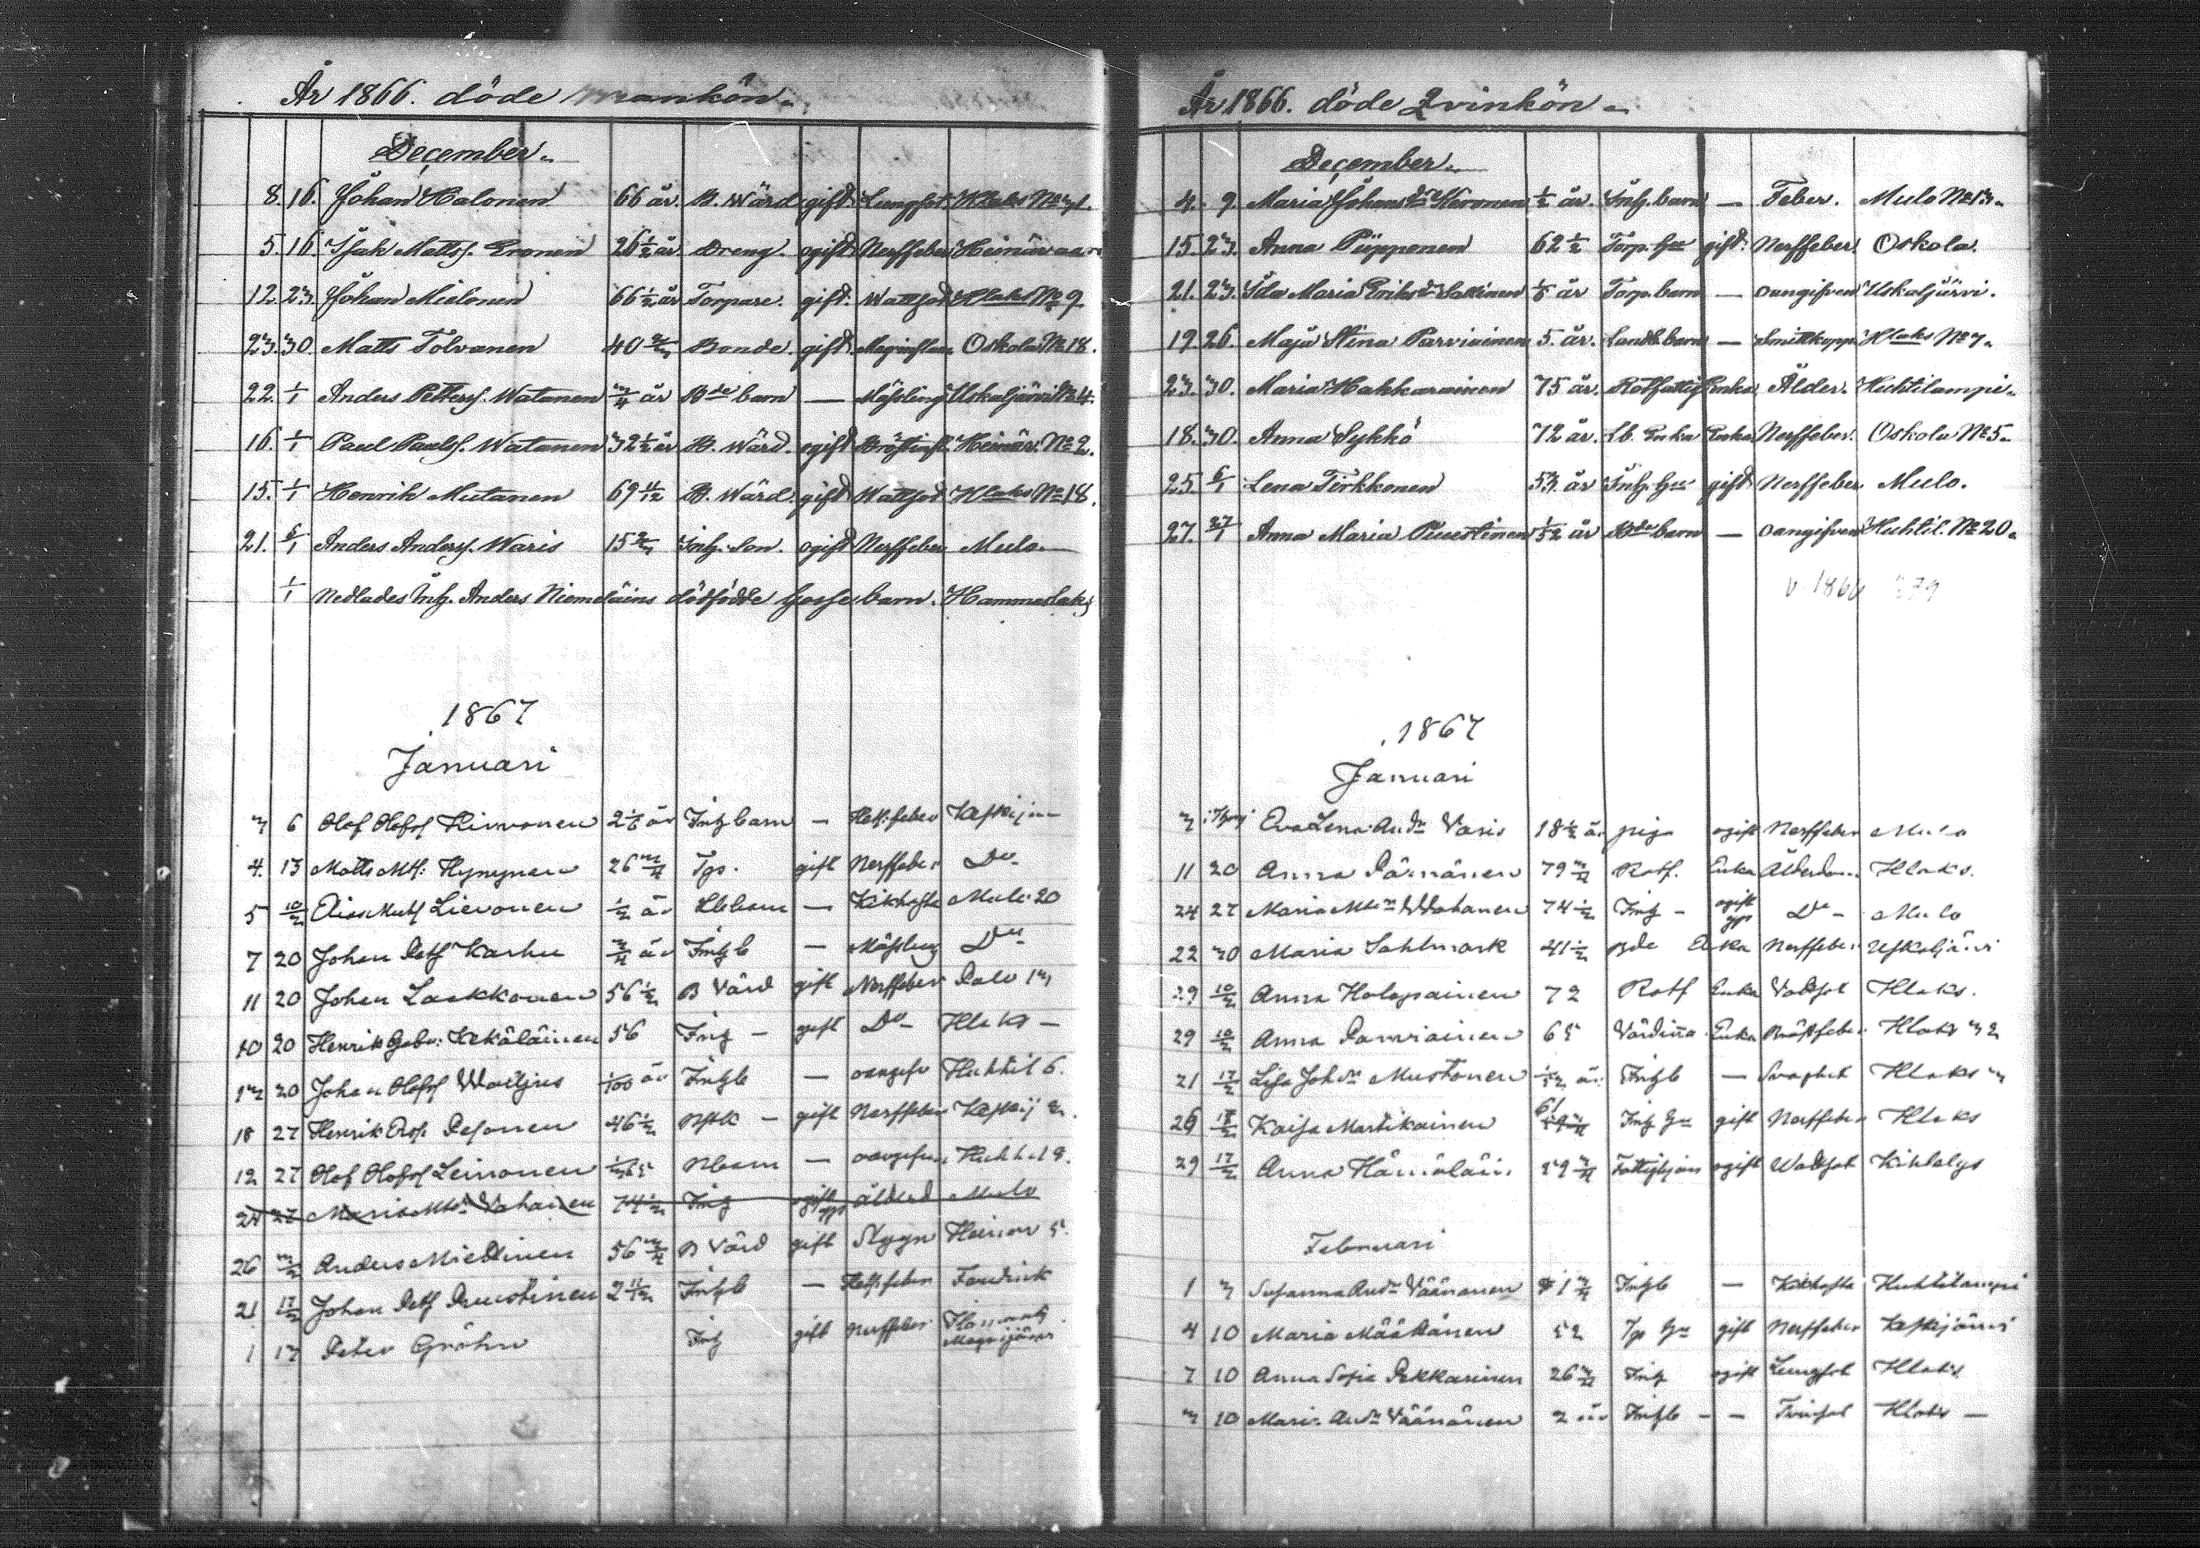 År 1866. döde mankön.
December.
8. 16. Johan Halonen 66 år. B. Wärd gift Lungsot Hlaks No
5. 16. Isak Matts. Eronen 26 1/2 år Dreng. ogift Nerffeber Heinäwaara
12. 23. Johan Mielonen 66 1/2 år Torpare. gift. Wattsot Hlaks No 9.
23. 30. Matts Tolvanen 40 Bonde. gift Oskola No 18.
22. 1/1 Anders Petters. Watanen 3/4 år Bde barn — Mässling Uskaljärvi No 4.
16. 1/1 Paul Pauls. Watanen 32 1/2 år B. Wärd. ogift Heinäv. No 2.
15. 1/1 Henrik Mutanen 69 11/12 B. Wärd. gift Wattsot Hlaks No 18.
21. 6/1 Anders Anders. Waris 15 Inh. Son. ogift Nerffeber Mulo.
1/1 Nedlades Inh. Anders Niemeläins dödfödde Gosse barn. Hammaslaks
1867
Januari
3 6 Olof Olofss Hirvonen 2 1/6 år Inhbarn — Het. feber Kaskij
4. 13 Matts Mts: Hynynen 26 3/4 Tps. gift Nerffeber Do
5 10/2 Lievonen 1/2 år — Kikhosta Mulo 20
7 20 Johan Petss Karhu 3/4 år Inhb — Mässling Do
11 20 Johan Laakkonen 56 1/2 B Värd gift Nerffeber Palo 13
10 20 Henrik Gabr: Kekäläinen 56 Inh — gift Do — Hlaks —
13 20 Johan Olofss 1/100 år Inhb — oangifv Huhtil 6.
18 27 Henrik Pesonen 46 1/2 — gift Nerffeber Kaskij 2.
12 27 Olof Olofss Leinonen — oangifven Huhtil 9.
24 27 Maria Mtsdr Vatanen 74 1/2 Inh ogift ålderd Mulo
26 3/2 Anders Miettinen 56 3/4 B Värd gift Heinäv 5.
21 17/2 Johan Petss Puustinen 2 11/12 Inhb — Het. feber
1 13 Petter Gröhn Inh gift Nerffeber
År 1866. döde Qvinkön.
December.
4. 9. Maria Johansdr Hirvonen 1/2 år. Inh. barn — Feber. Mulo No 13.
15. 23. Anna Piipponen 62 1/2 Torp. Hu gift. Nerffeber. Oskola.
21. 23. Ida Maria Eriksdr Sallinen 1/6 år Torp. barn — oangifven Uskaljärvi.
19 26. Maja Stina Parviainen 5. år. Landb. barn — Smittkopp. Hlaks No 7.
23. 30. Maria Hakkarainen 75 år. Rotfattig Enka Ålder. Huhtilampi.
18. 30. Anna Sykkö 72 år. Lb. Enka Enka Nerffeber. Oskola No 5.
25. 6/1 Lena Tirkkonen 53. år Inh. Hu gift Nerffeber Mulo.
27. 27/1 Anna Maria Puustinen 1/52 år Bde barn — oangifven Huhtil. No 20.
1866 79
1867
Januari
3 Eva Lena Andr Varis 18 1/2 år piga ogift Nerffeber Mulo
11 20 Anna 79 3/4 Rotf. Enka Hlaks.
24 27 Maria Mtsdr Watanen 74 1/2 Inh — ogift Do — Mulo
22 30 Maria Sahlmark 41 1/2 Bde Enka Nerffeber Uskaljärvi
29 10/2 Anna Holopainen 72 Rotf Enka Vattsot Hlaks.
29 10/2 Anna Parviainen 65 Värdinna Enka Bröstfeber Hlaks 32
21 17/2 Lisa Johdr Mustonen 1/52 år Inhb — Hlaks 3
26 17/2 Kaisa Martikainen 61 Inh Hu gift Nerffeber Hlaks
29 17/2 Anna Hämäläin 59 3/4 Fattighjon ogift Wattsot Kihtelys
Februari
1 3 Susanna Andr Väänänen 1 3/4 Inhb — Kikhosta Huhtilampi
4 10 Maria Määttänen 52 Tp Hu gift Nerffeber Kaskijärvi
7 10 Anna Sofia Pekkarinen 26 3/4 Inh ogift Lungsot Hlaks
3 10 Maria Andr Väänänen 2 år Inhb — — Hlaks —